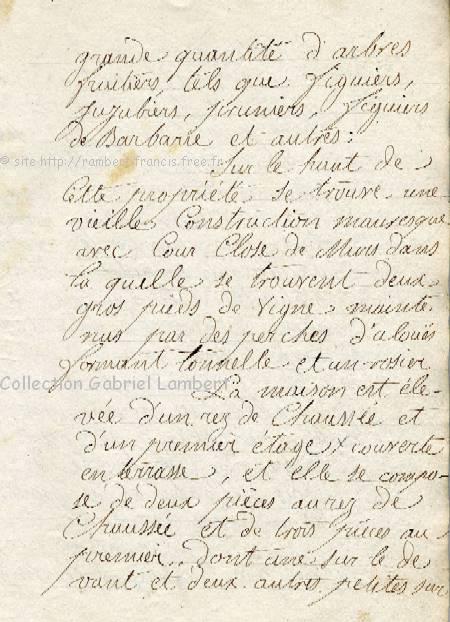 grande quantité d'arbres
fruitiers, tels que figuiers,
Jujubiers, pruniers, figuiers
de Barbarie et autres:
© site-http://rambert.francis.free.fr
Sur le haut de
Cette propriété se trouve une
vieille Construction mauresque
avec Cour Close de Murs dans
la quelle se trouvent deux
gros pieds de Vigne mainte
nus par des perches d'alouës
formant tonnelle et un rosier
Collection Gabriel Lambert
La maison est éle-
vée d'un rez de Chaussée et
d'un premier étage x couverte
en terrasse, et elle se compo-
se de deux pièces au rez de
Chaussée et de trois pièces au
premier.. dont une sur le de
vant et deux autres petites sur